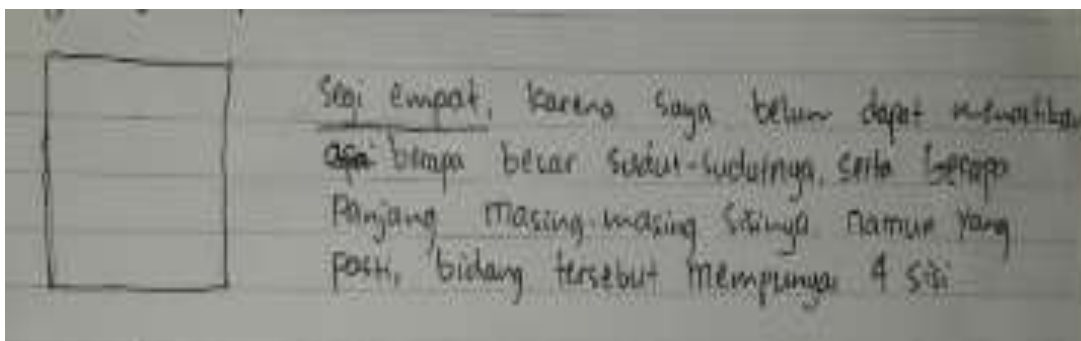 Segi empat, karena saya belum dapat memastikan
berapa besar sudut-sudutnya, serta berapa
Panjang masing-masing sisinya namun yang
pasti, bidang tersebut mempunyai 4 sisi